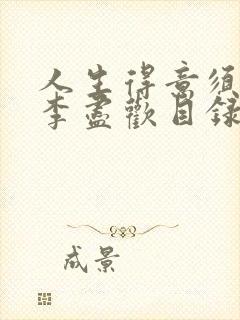 人生得意须
李盡歡目録
成景